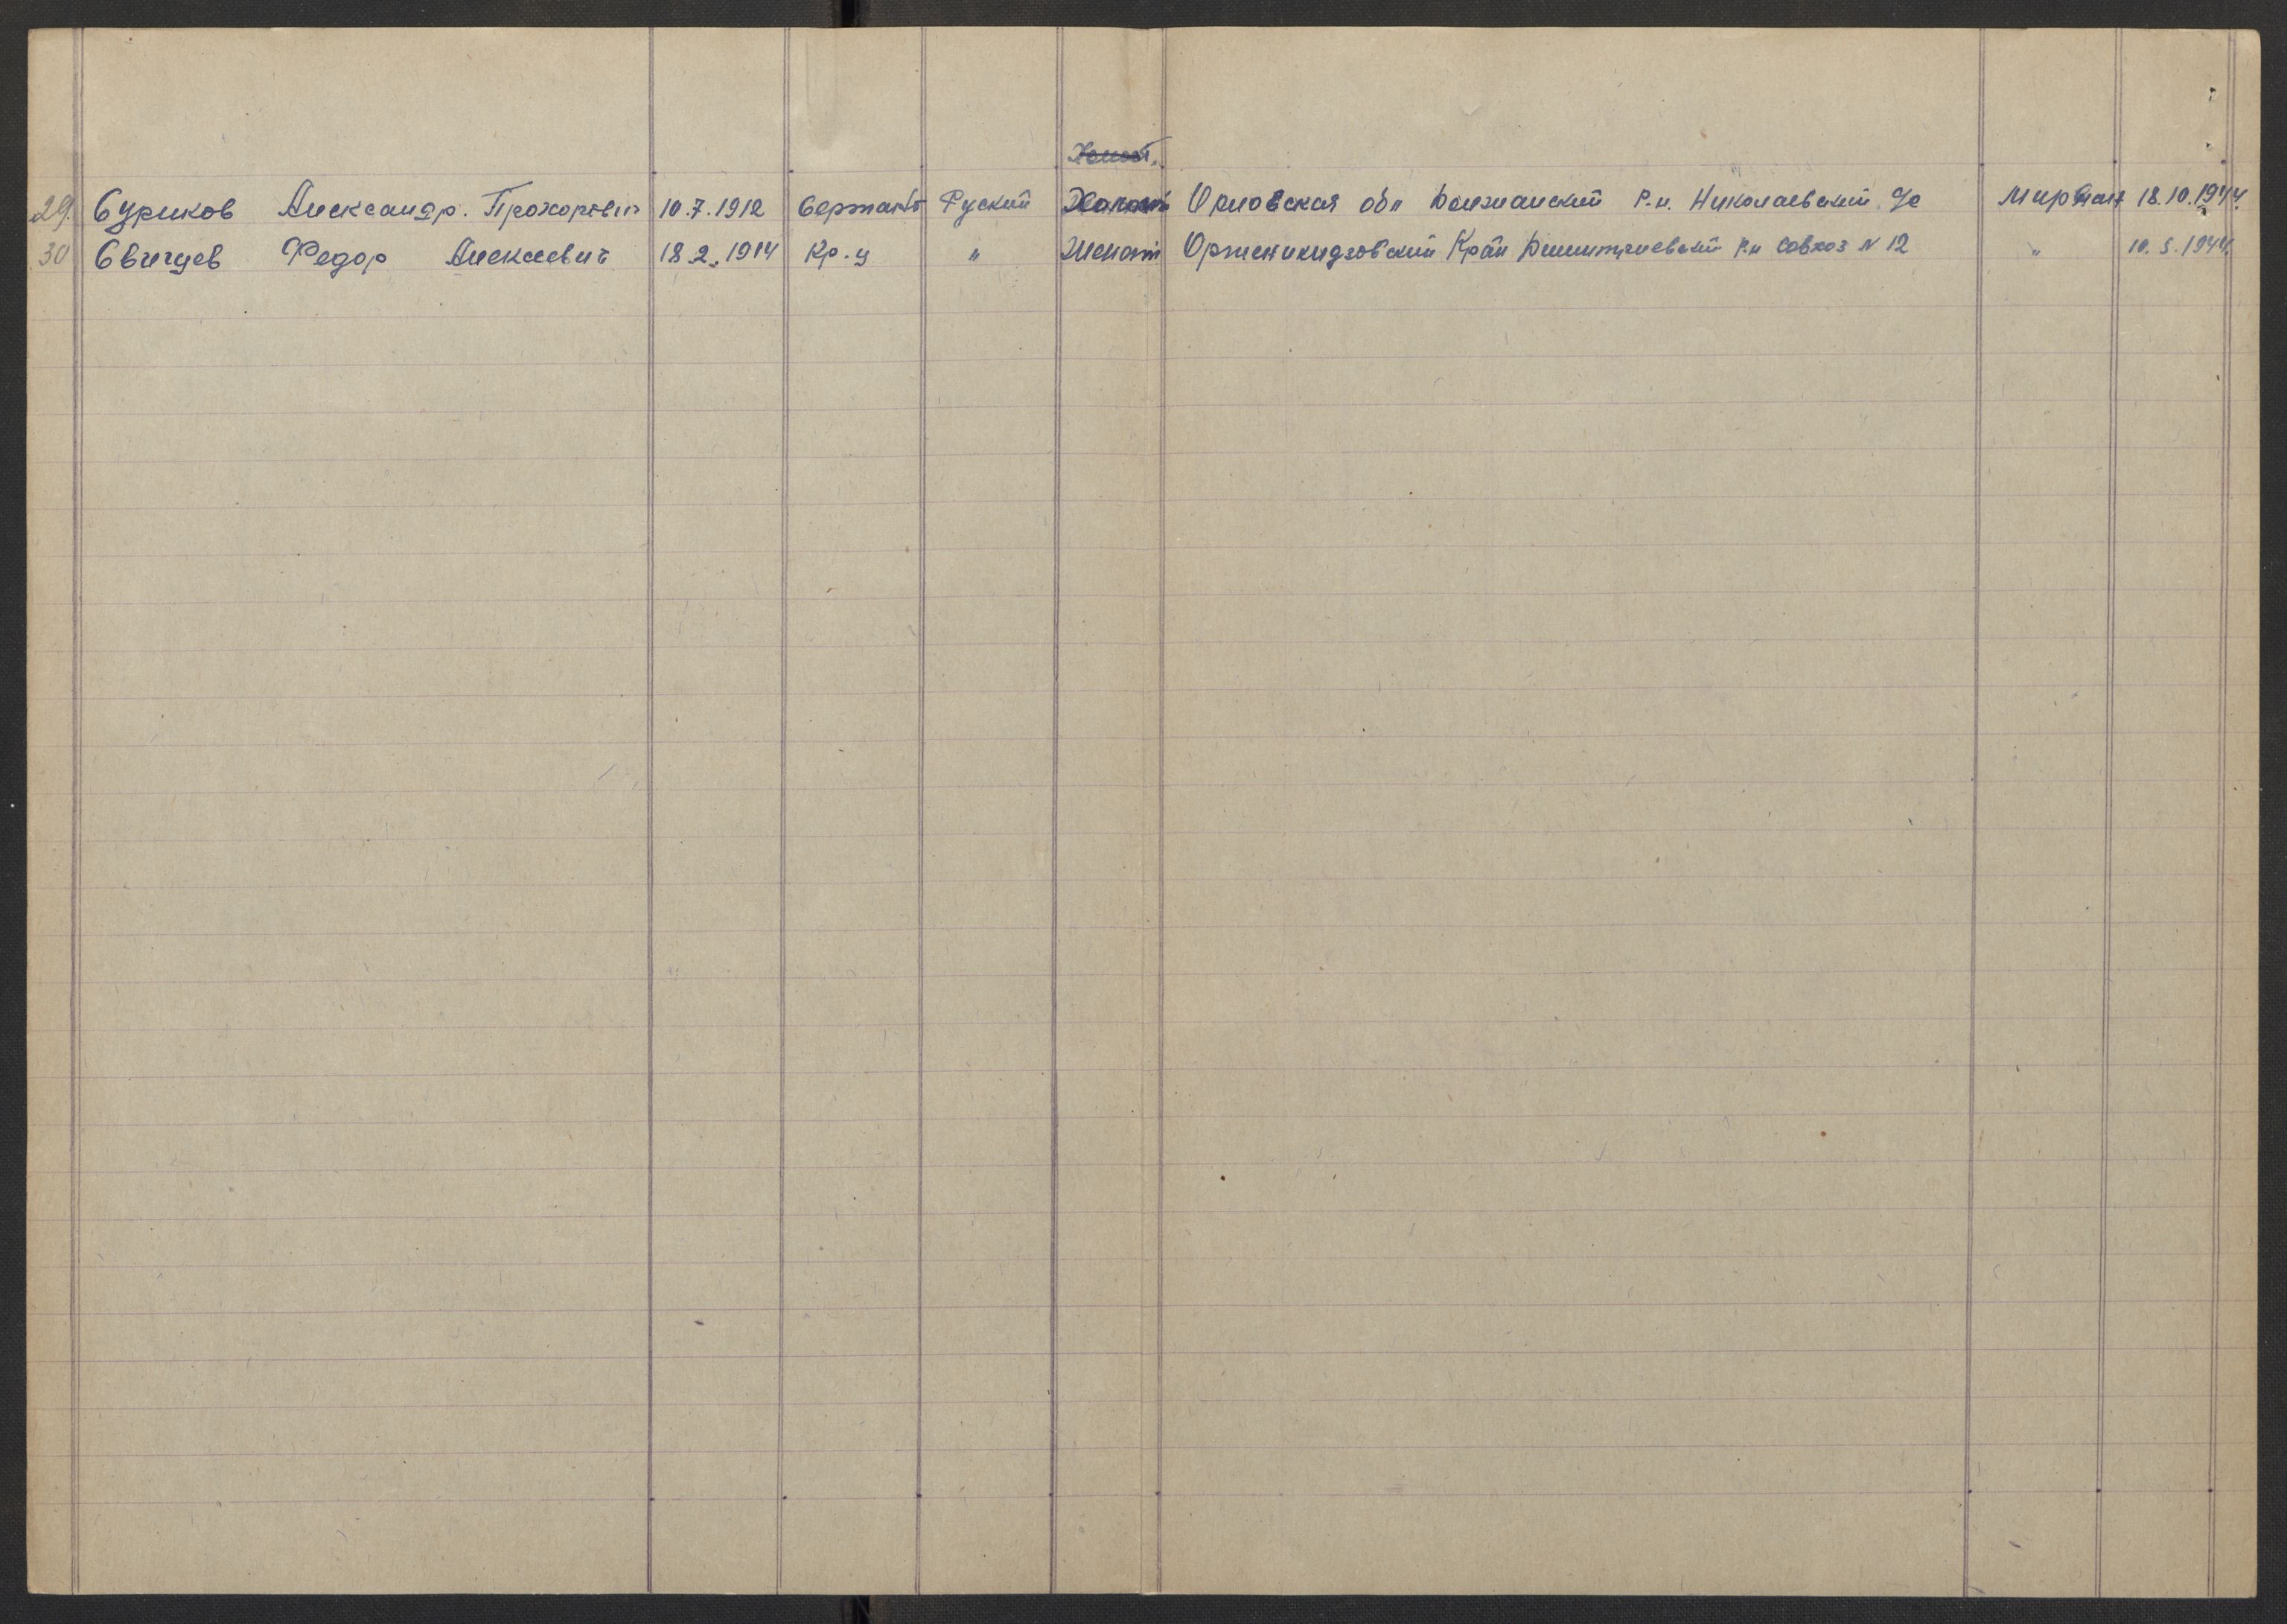 Холост.
29. Суриков Александр. Прохорович 10.7.1912 Сержант Руский Холост Орловская обл Должанский Р.н. Николаевский с/с Мирвал 18.10.1944.
30 Свичуев Федор Алексеевич 18.2.1914 Кр.у " Женат Орженикидзовский Край Димитриевский Р.н Совхоз N 12 " 10.5.1944.